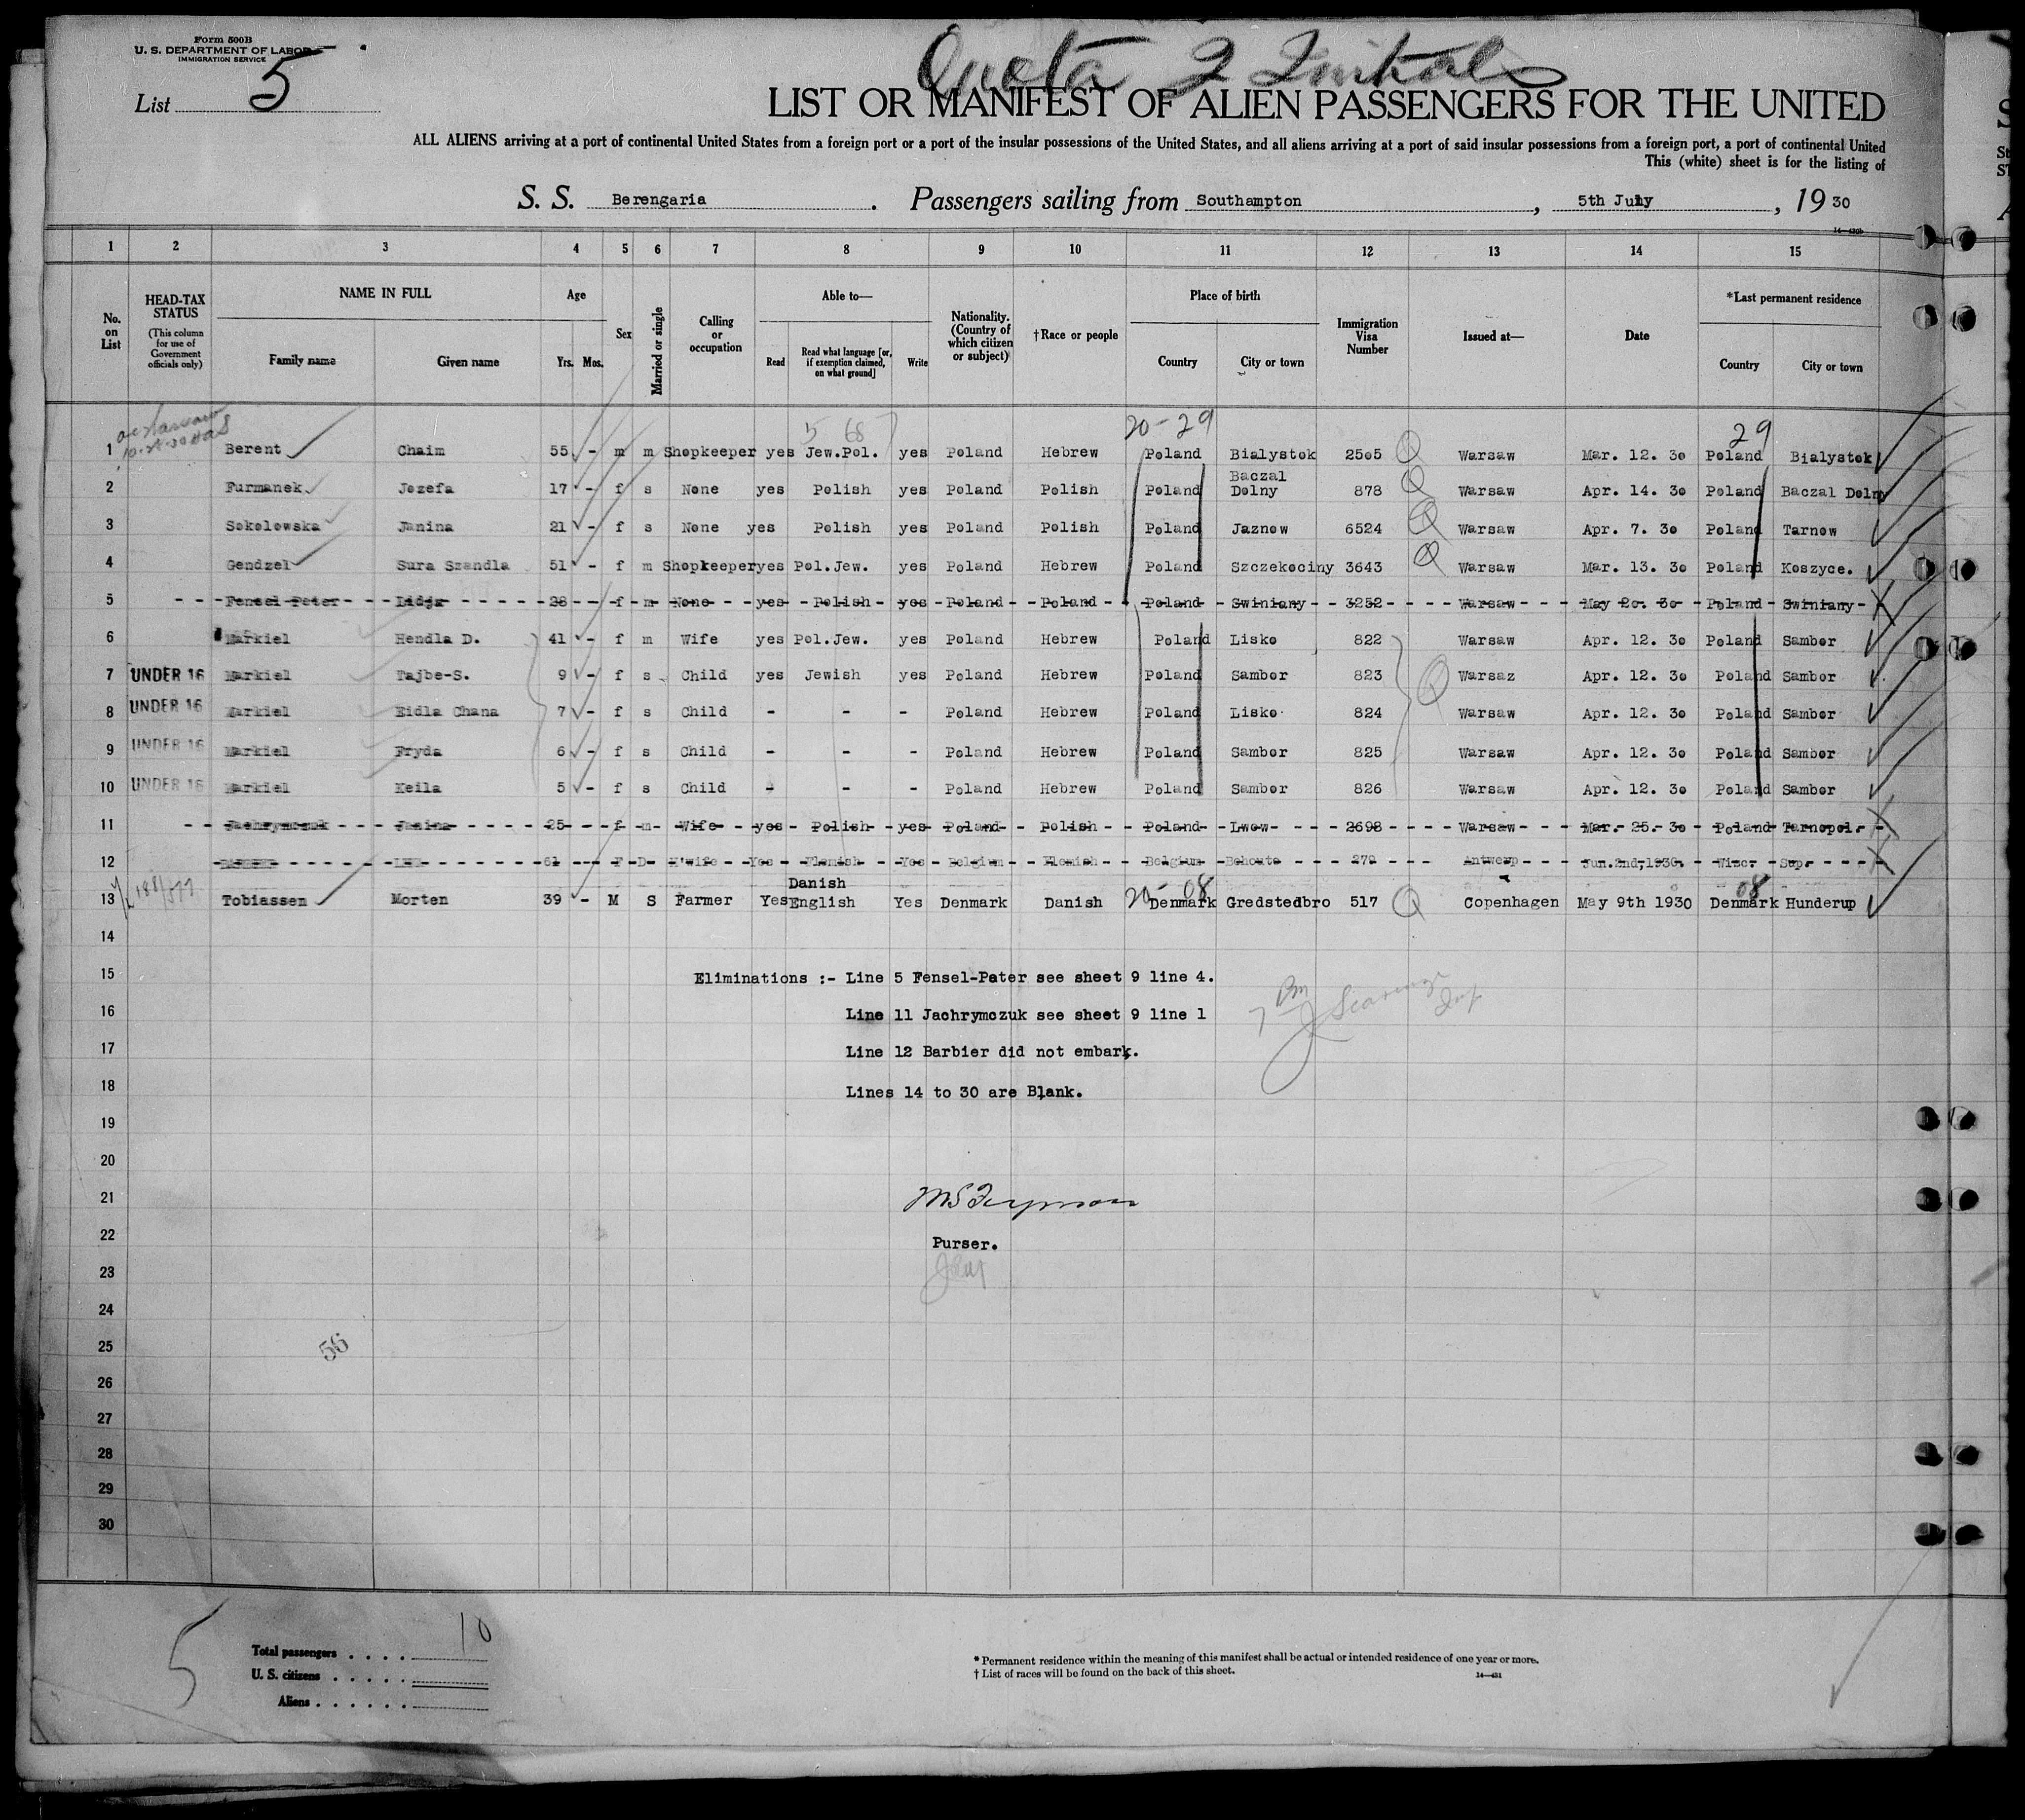 Form 500B
U. S. DEPARTMENT OF LABOR
IMMIGRATION SERVICE
Quota
List 5
LIST OR MANIFEST OF ALIEN PASSENGERS FOR THE UNITED
ALL ALIENS arriving at a port of continental United States from a foreign port or a port of the insular possessions of the United States, and all aliens arriving at a port of said insular possessions from a foreign port, a port of continental United
This (white) sheet is for the listing of
S. S. Berengaria. Passengers sailing from Southampton, 5th July, 19 30
1 2 3 4 5 6 7 8 9 10 11 12 13 14 15
No. on List HEAD-TAX STATUS (This column for use of Government officials only) NAME IN FULL Family name Given name Age Yrs. Mos. Sex Married or single Calling or occupation Able to— Read Read what language [or, if exemption claimed, on what ground] Write Nationality. (Country of which citizen or subject) †Race or people Place of birth Country City or town Immigration Visa Number Issued at— Date *Last permanent residence Country City or town
20-29 29
1 Berent Chaim 55 - m m Shopkeeper yes Jew.Pol. yes Poland Hebrew Poland Bialystok 2505 Q Warsaw Mar. 12. 30 Poland Bialystok
2 Furmanek Jozefa 17 - f s None yes Polish yes Poland Polish Poland Baczal Dolny 878 Q Warsaw Apr. 14. 30 Poland Baczal Dolny
3 Sokolowska Janina 21 - f s None yes Polish yes Poland Polish Poland Jaznow 6524 Q Warsaw Apr. 7. 30 Poland Tarnow
4 Gendzel Sura Szandla 51 - f m Shopkeeper yes Pol.Jew. yes Poland Hebrew Poland Szczekociny 3643 Q Warsaw Mar. 13. 30 Poland Koszyce.
5 Fensel-Peter Lidja 28 f m None yes Polish yes Poland Poland Poland Swiniany 3232 Warsaw May 20. 30 Poland Swiniany
6 Markiel Hendla D. 41 - f m Wife yes Pol.Jew. yes Poland Hebrew Poland Lisko 822 Warsaw Apr. 12. 30 Poland Sambor
7 UNDER 16 Markiel Tajbe-S. 9 - f s Child yes Jewish yes Poland Hebrew Poland Sambor 823 Q Warsaz Apr. 12. 30 Poland Sambor
8 UNDER 16 Markiel Eidla Chana 7 - f s Child - - - Poland Hebrew Poland Lisko 824 Warsaw Apr. 12. 30 Poland Sambor
9 UNDER 16 Markiel Fryda 6 - f s Child - - - Poland Hebrew Poland Sambor 825 Warsaw Apr. 12. 30 Poland Sambor
10 UNDER 16 Markiel Keila 5 - f s Child - - - Poland Hebrew Poland Sambor 826 Warsaw Apr. 12. 30 Poland Sambor
11 Jachrymczuk Janina 25 f m Wife yes Polish yes Poland Polish Poland Lwow 2698 Warsaw Mar. 25. 30 Poland Tarnopol.
12 61 F D H'wife Yes Flemish Yes Belgium Flemish Belgium 279 Antwerp Jun.2nd,1930. Wisc. Sup.
13 Tobiassen Morten 39 - M S Farmer Yes Danish English Yes Denmark Danish 20-08 Denmark Gredstedbro 517 Q Copenhagen May 9th 1930 08 Denmark Hunderup
14
15 Eliminations :- Line 5 Fensel-Peter see sheet 9 line 4.
16 Line 11 Jachrymczuk see sheet 9 line 1
17 Line 12 Barbier did not embark.
18 Lines 14 to 30 are Blank.
19
20
21
22 Purser.
23
24
25 56
26
27
28
29
30
5
Total passengers . . . . 10
U. S. citizens . . . . .
Aliens . . . . . .
* Permanent residence within the meaning of this manifest shall be actual or intended residence of one year or more.
† List of races will be found on the back of this sheet.
14—431